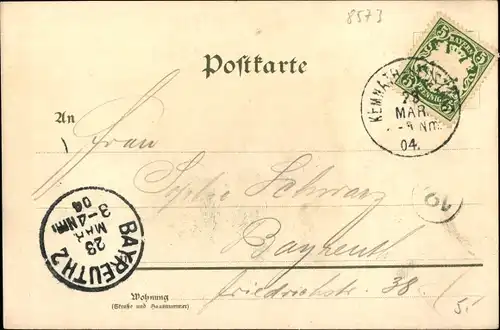 8573
Postkarte
5 5
BAYERN
5 5
KEMNATH
28
MAR.
04.
An Frau
Sophie Schwarz
19
BAYREUTH 2
29
MAR
3-4 Nm.
04
Bayreuth
Wohnung
(Straße und Hausnummer)
Friedrichstr. 38
5.